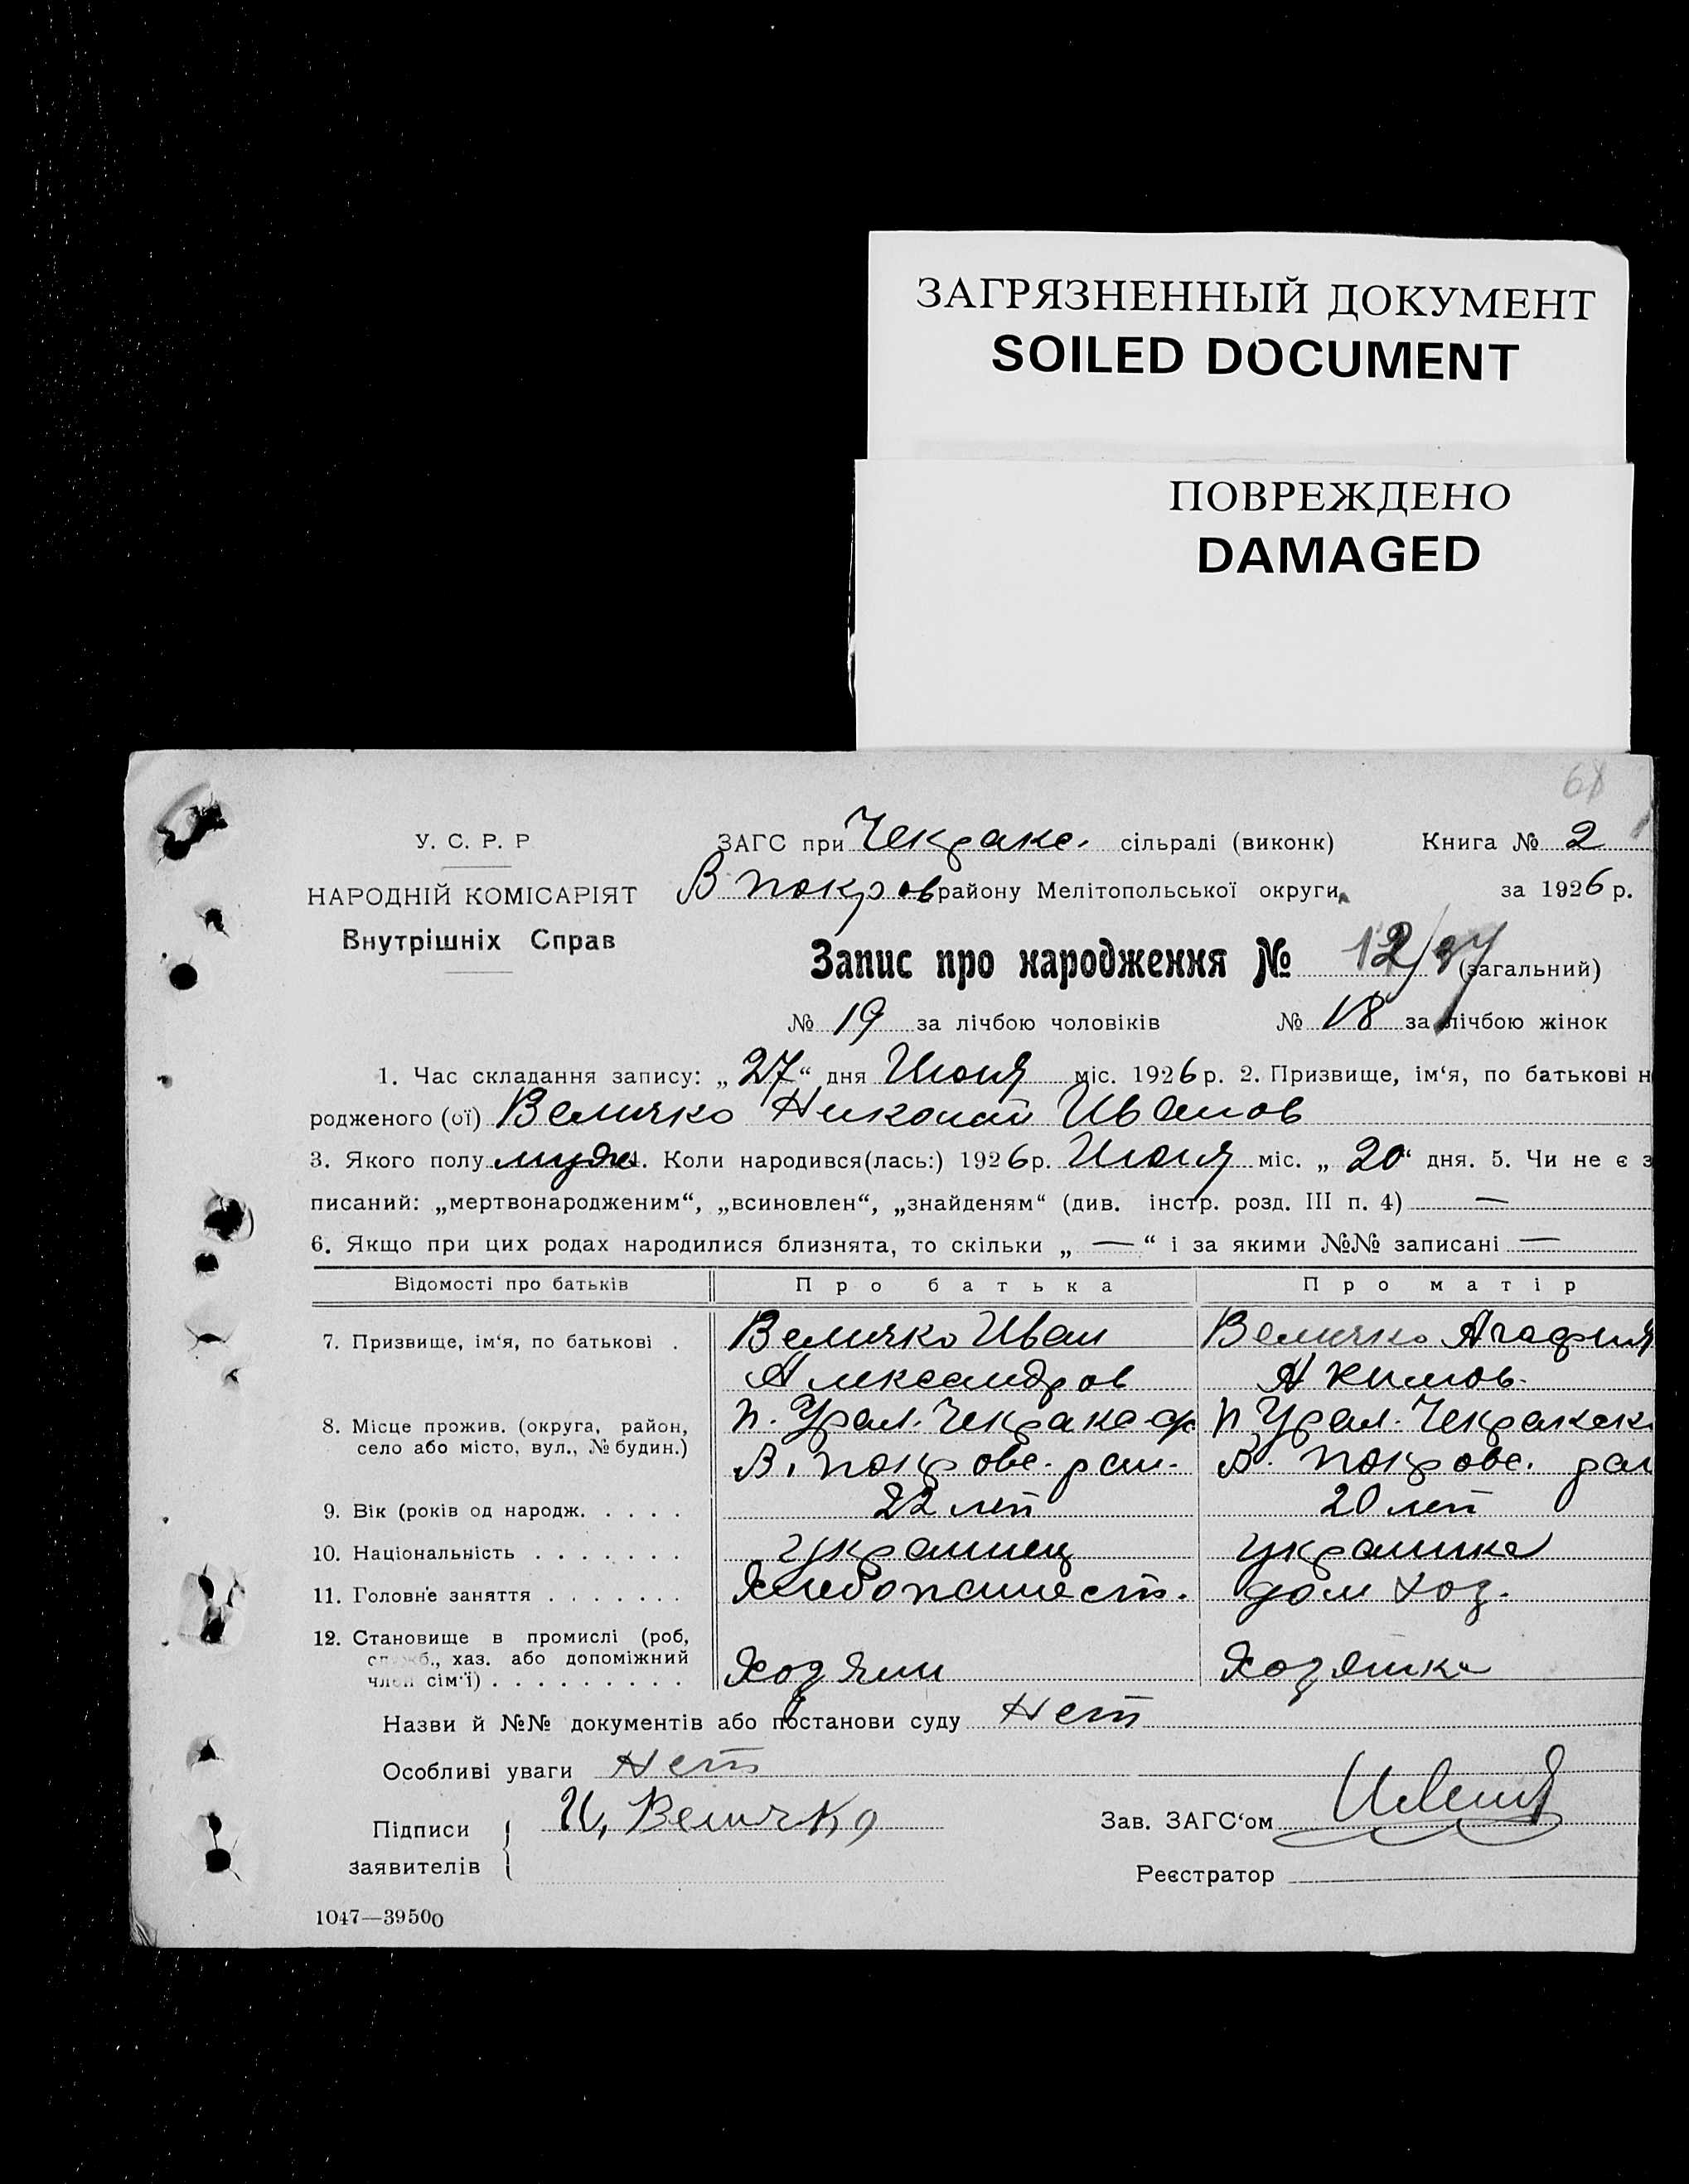 ЗАГРЯЗНЕННЫЙ ДОКУМЕНТ
SOILED DOCUMENT
ПОВРЕЖДЕНО
DAMAGED
68
У. С. Р. Р
НАРОДНІЙ КОМІСАРІЯТ
Внутрішніх Справ
ЗАГС при Чекракс. сільраді (виконк) Книга № 2
В покров району Мелітопольської округи за 1926 р.
Запис про народження № 12/37 (загальний)
№ 19 за лічбою чоловіків № 18 за лічбою жінок
1. Час складання запису: „27“ дня Июня міс. 1926 р. 2. Призвище, ім‘я, по батькові н
родженого (ої) Величко Николай Иванов
3. Якого полу муж. Коли народився(лась:) 1926 р. Июня міс. „20“ дня. 5. Чи не є з
писаний: „мертвонародженим“, „всиновлен“, „знайденям“ (див. інстр. розд. III п. 4) —
6. Якщо при цих родах народилися близнята, то скільки „ — “ і за якими №№ записані —
Відомості про батьків Про батька Про матір
7. Призвище, ім‘я, по батькові . Величко Иван Величко Агафия
Александров Акимов.
8. Місце прожив. (округа, район, п. Урал. Чекракс п Урал. Чекракск
село або місто, вул., № будин.) В. покровс. рай. В. покровс. рай
9. Вік (років од народж. . . . . 22 лет 20 лет
10. Національність . . . . . . . украинец украинка
11. Головне заняття . . . . . . . Хлебопашест. дом хоз.
12. Становище в промислі (роб,
служб., хаз. або допоміжний Хозяин Хозяйка
член сім‘ї) . . . . . . . . .
Назви й №№ документів або постанови суду Нет
Особливі уваги Нет
Підписи И, Величко Зав. ЗАГС‘ом
заявителів Реєстратор
1047—39500